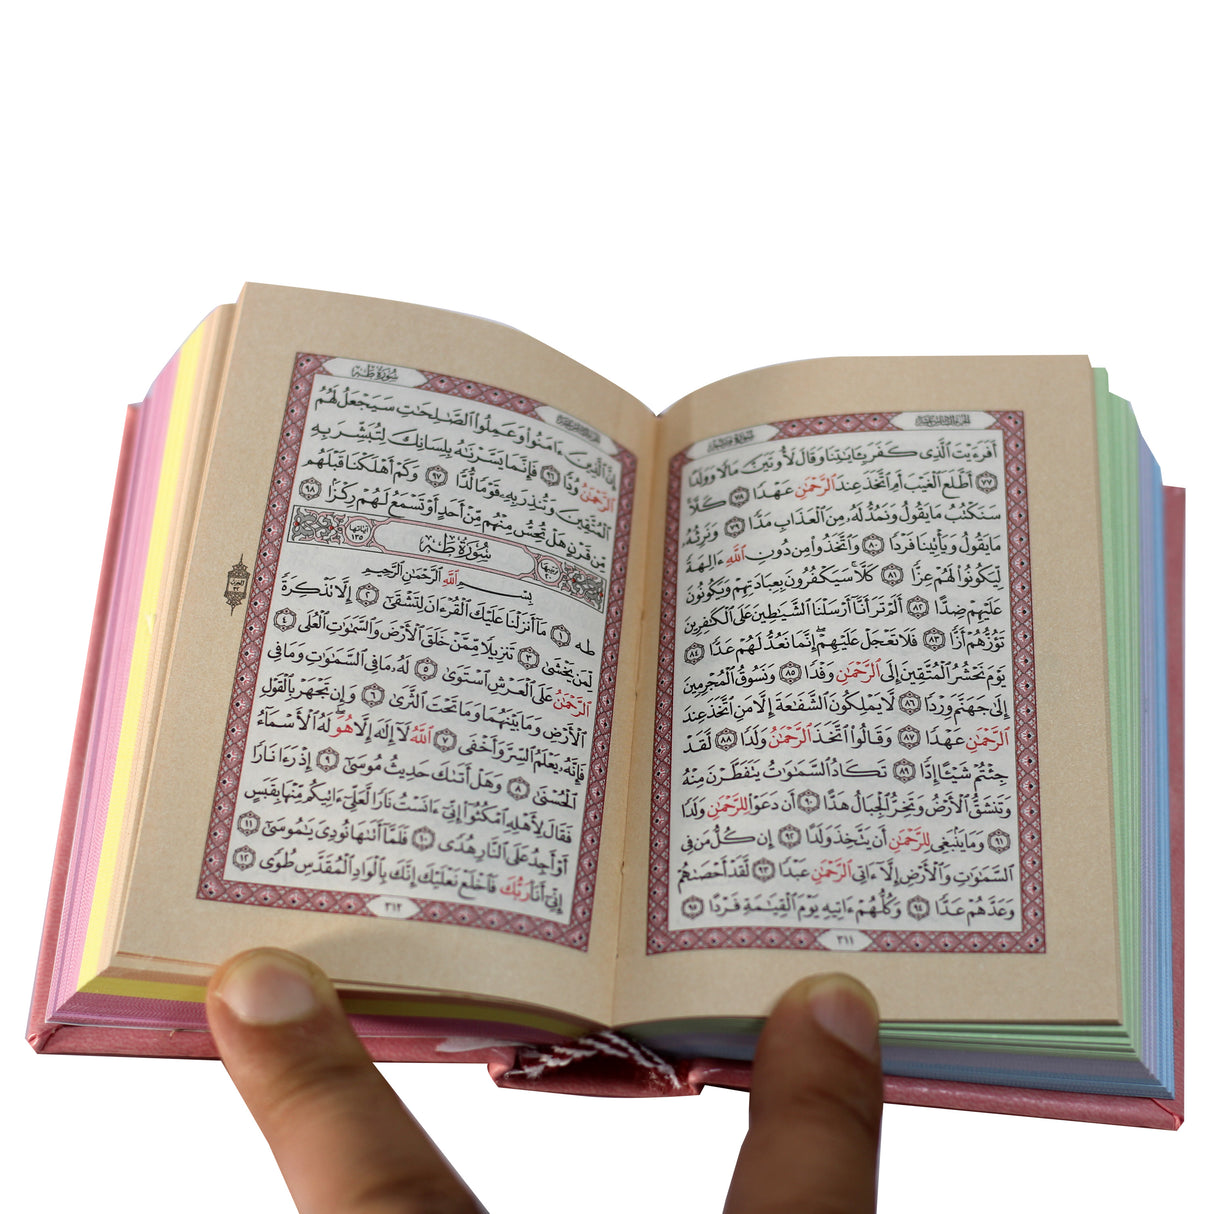 سورة مريم
الجزء السادس عشر
أَفَرَءَيْتَ ٱلَّذِى كَفَرَ بِـَٔايَٰتِنَا وَقَالَ لَأُوتَيَنَّ مَالًا وَوَلَدًا
٧٧ أَطَّلَعَ ٱلْغَيْبَ أَمِ ٱتَّخَذَ عِندَ ٱلرَّحْمَٰنِ عَهْدًا ٧٨ كَلَّا
سَنَكْتُبُ مَا يَقُولُ وَنَمُدُّ لَهُۥ مِنَ ٱلْعَذَابِ مَدًّا ٧٩ وَنَرِثُهُۥ
مَا يَقُولُ وَيَأْتِينَا فَرْدًا ٨٠ وَٱتَّخَذُوا۟ مِن دُونِ ٱللَّهِ ءَالِهَةً
لِّيَكُونُوا۟ لَهُمْ عِزًّا ٨١ كَلَّا سَيَكْفُرُونَ بِعِبَادَتِهِمْ وَيَكُونُونَ
عَلَيْهِمْ ضِدًّا ٨٢ أَلَمْ تَرَ أَنَّآ أَرْسَلْنَا ٱلشَّيَٰطِينَ عَلَى ٱلْكَٰفِرِينَ
تَؤُزُّهُمْ أَزًّا ٨٣ فَلَا تَعْجَلْ عَلَيْهِمْ إِنَّمَا نَعُدُّ لَهُمْ عَدًّا ٨٤
يَوْمَ نَحْشُرُ ٱلْمُتَّقِينَ إِلَى ٱلرَّحْمَٰنِ وَفْدًا ٨٥ وَنَسُوقُ ٱلْمُجْرِمِينَ
إِلَىٰ جَهَنَّمَ وِرْدًا ٨٦ لَّا يَمْلِكُونَ ٱلشَّفَٰعَةَ إِلَّا مَنِ ٱتَّخَذَ عِندَ
ٱلرَّحْمَٰنِ عَهْدًا ٨٧ وَقَالُوا۟ ٱتَّخَذَ ٱلرَّحْمَٰنُ وَلَدًا ٨٨ لَّقَدْ
جِئْتُمْ شَيْـًٔا إِدًّا ٨٩ تَكَادُ ٱلسَّمَٰوَٰتُ يَتَفَطَّرْنَ مِنْهُ
وَتَنشَقُّ ٱلْأَرْضُ وَتَخِرُّ ٱلْجِبَالُ هَدًّا ٩٠ أَن دَعَوْا۟ لِلرَّحْمَٰنِ وَلَدًا
٩١ وَمَا يَنۢبَغِى لِلرَّحْمَٰنِ أَن يَتَّخِذَ وَلَدًا ٩٢ إِن كُلُّ مَن فِى
ٱلسَّمَٰوَٰتِ وَٱلْأَرْضِ إِلَّآ ءَاتِى ٱلرَّحْمَٰنِ عَبْدًا ٩٣ لَّقَدْ أَحْصَىٰهُمْ
وَعَدَّهُمْ عَدًّا ٩٤ وَكُلُّهُمْ ءَاتِيهِ يَوْمَ ٱلْقِيَٰمَةِ فَرْدًا ٩٥
٣١١
الجزء السادس عشر
سورة طه
إِنَّ ٱلَّذِينَ ءَامَنُوا۟ وَعَمِلُوا۟ ٱلصَّٰلِحَٰتِ سَيَجْعَلُ لَهُمُ
ٱلرَّحْمَٰنُ وُدًّا ٩٦ فَإِنَّمَا يَسَّرْنَٰهُ بِلِسَانِكَ لِتُبَشِّرَ بِهِ
ٱلْمُتَّقِينَ وَتُنذِرَ بِهِۦ قَوْمًا لُّدًّا ٩٧ وَكَمْ أَهْلَكْنَا قَبْلَهُم
مِّن قَرْنٍ هَلْ تُحِسُّ مِنْهُم مِّنْ أَحَدٍ أَوْ تَسْمَعُ لَهُمْ رِكْزًۢا ٩٨
ترتيبها ٢٠ سُورَةُ طه آياتها ١٣٥
بِسْمِ ٱللَّهِ ٱلرَّحْمَٰنِ ٱلرَّحِيمِ
طه ١ مَآ أَنزَلْنَا عَلَيْكَ ٱلْقُرْءَانَ لِتَشْقَىٰٓ ٢ إِلَّا تَذْكِرَةً
لِّمَن يَخْشَىٰ ٣ تَنزِيلًا مِّمَّنْ خَلَقَ ٱلْأَرْضَ وَٱلسَّمَٰوَٰتِ ٱلْعُلَى ٤
ٱلرَّحْمَٰنُ عَلَى ٱلْعَرْشِ ٱسْتَوَىٰ ٥ لَهُۥ مَا فِى ٱلسَّمَٰوَٰتِ وَمَا فِى
ٱلْأَرْضِ وَمَا بَيْنَهُمَا وَمَا تَحْتَ ٱلثَّرَىٰ ٦ وَإِن تَجْهَرْ بِٱلْقَوْلِ
فَإِنَّهُۥ يَعْلَمُ ٱلسِّرَّ وَأَخْفَى ٧ ٱللَّهُ لَآ إِلَٰهَ إِلَّا هُوَ لَهُ ٱلْأَسْمَآءُ
ٱلْحُسْنَىٰ ٨ وَهَلْ أَتَىٰكَ حَدِيثُ مُوسَىٰٓ ٩ إِذْ رَءَا نَارًا
فَقَالَ لِأَهْلِهِ ٱمْكُثُوٓا۟ إِنِّىٓ ءَانَسْتُ نَارًا لَّعَلِّىٓ ءَاتِيكُم مِّنْهَا بِقَبَسٍ
أَوْ أَجِدُ عَلَى ٱلنَّارِ هُدًى ١٠ فَلَمَّآ أَتَىٰهَا نُودِىَ يَٰمُوسَىٰٓ ١١
إِنِّىٓ أَنَا۠ رَبُّكَ فَٱخْلَعْ نَعْلَيْكَ إِنَّكَ بِٱلْوَادِ ٱلْمُقَدَّسِ طُوًى ١٢
٣١٢
الحزب ٣٢